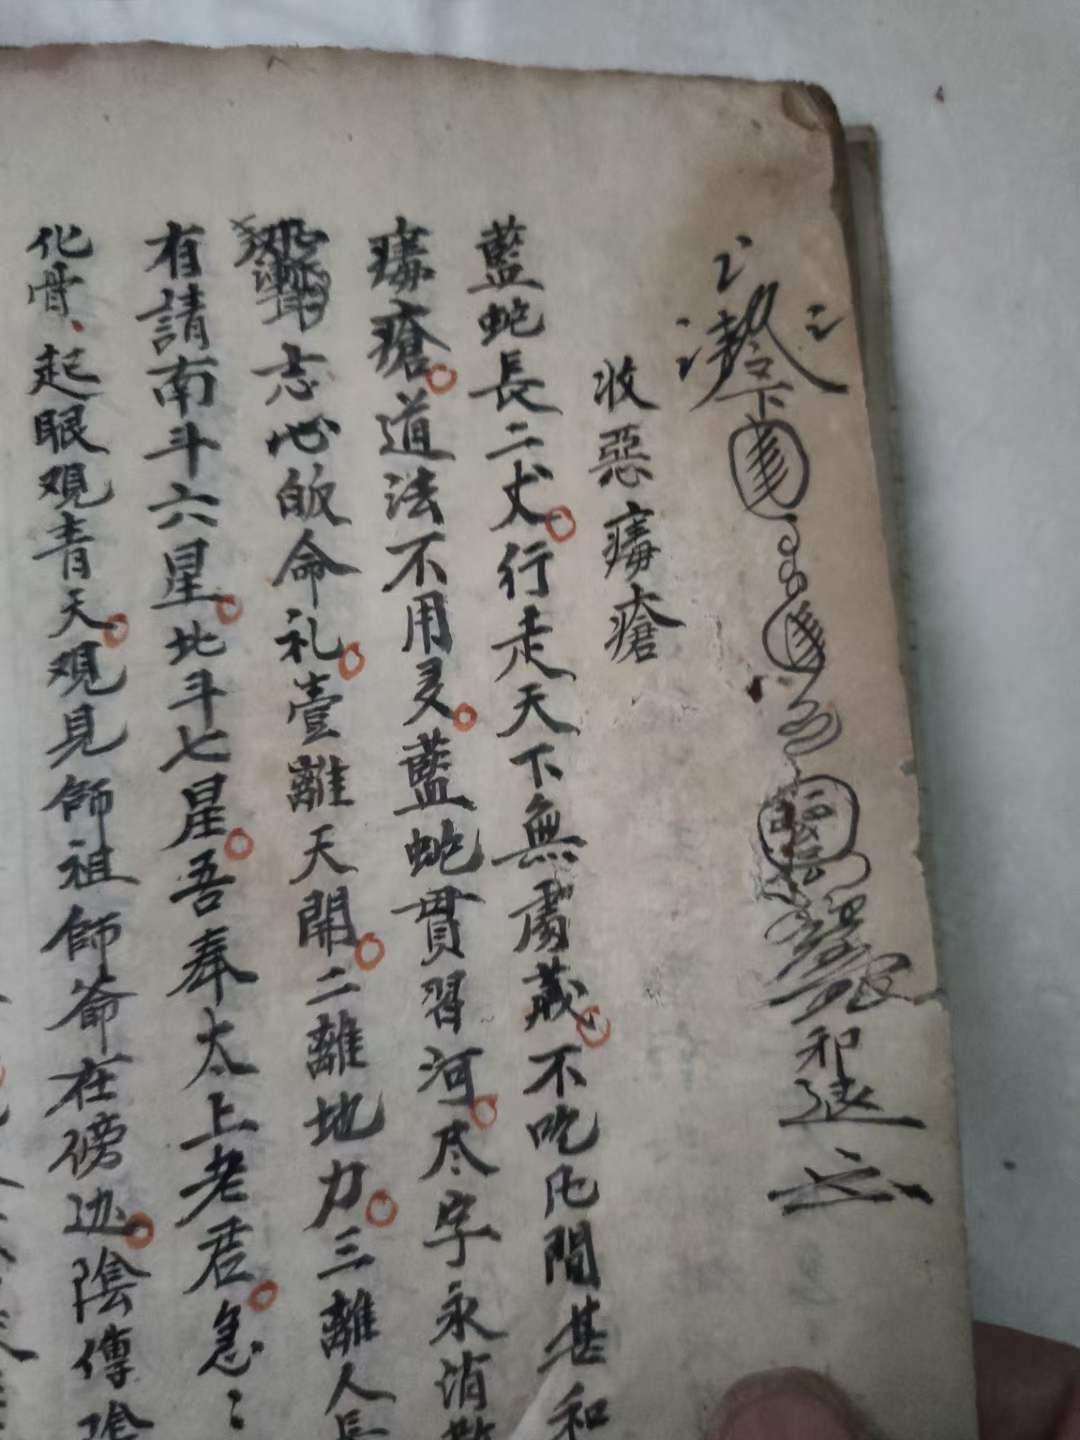 和送
收惡痲瘡
藍蛇長二丈行走天下無處藏不吃凡間甚和
痲瘡道法不用灵藍蛇貫習河尽字永消散
志心皈命礼壹離天開二離地力三離人長
有請南斗六星北斗七星吾奉太上老君急〻
化骨、起眼观青天观見師祖師爺在傍边陰傳陰